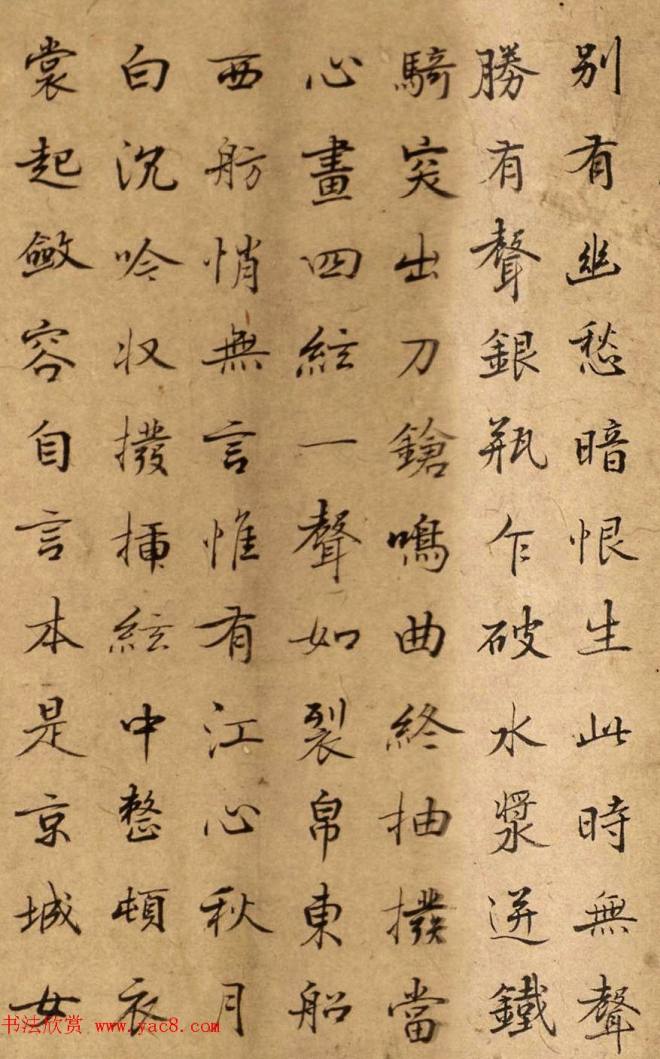 别有幽愁暗恨生此時無聲
勝有聲銀瓶乍破水漿迸鐵
騎突出刀鎗鳴曲終抽撥當
心畫四絃一聲如裂帛東船
西舫悄無言惟有江心秋月
白沉吟收撥插絃中整頓衣
裳起斂容自言本是京城女
书法欣赏 www.yac8.com